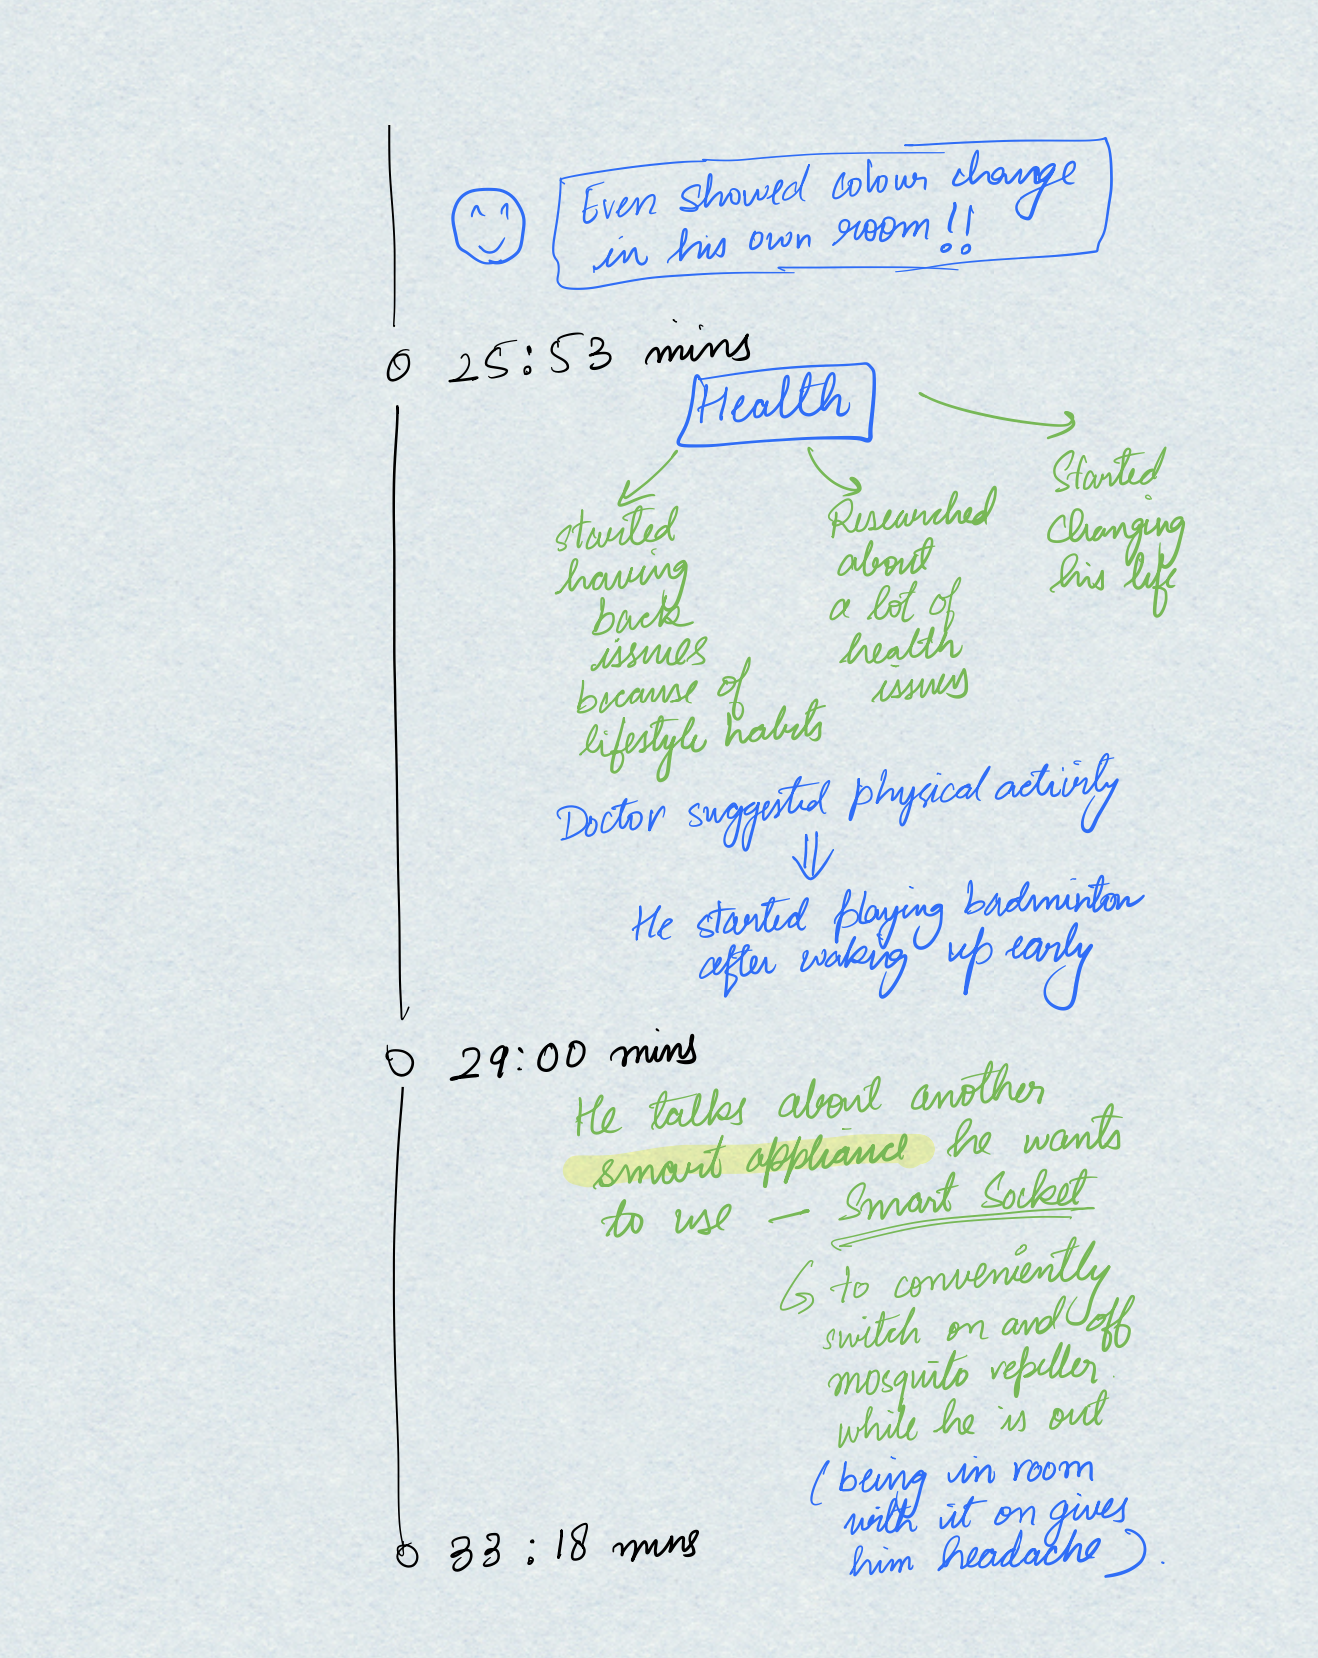 Even showed colour change
in his own room!!
25:53 mins
Health
started
having
back
issues
because of
lifestyle habits
Researched
about
a lot of
health
issues
Started
changing
his life
Doctor suggested physical activity
He started playing badminton
after waking up early
29:00 mins
He talks about another
smart appliance he wants
to use — Smart Socket
to conveniently
switch on and off
mosquito repeller
while he is out
(being in room
with it on gives
him headache).
33:18 mins